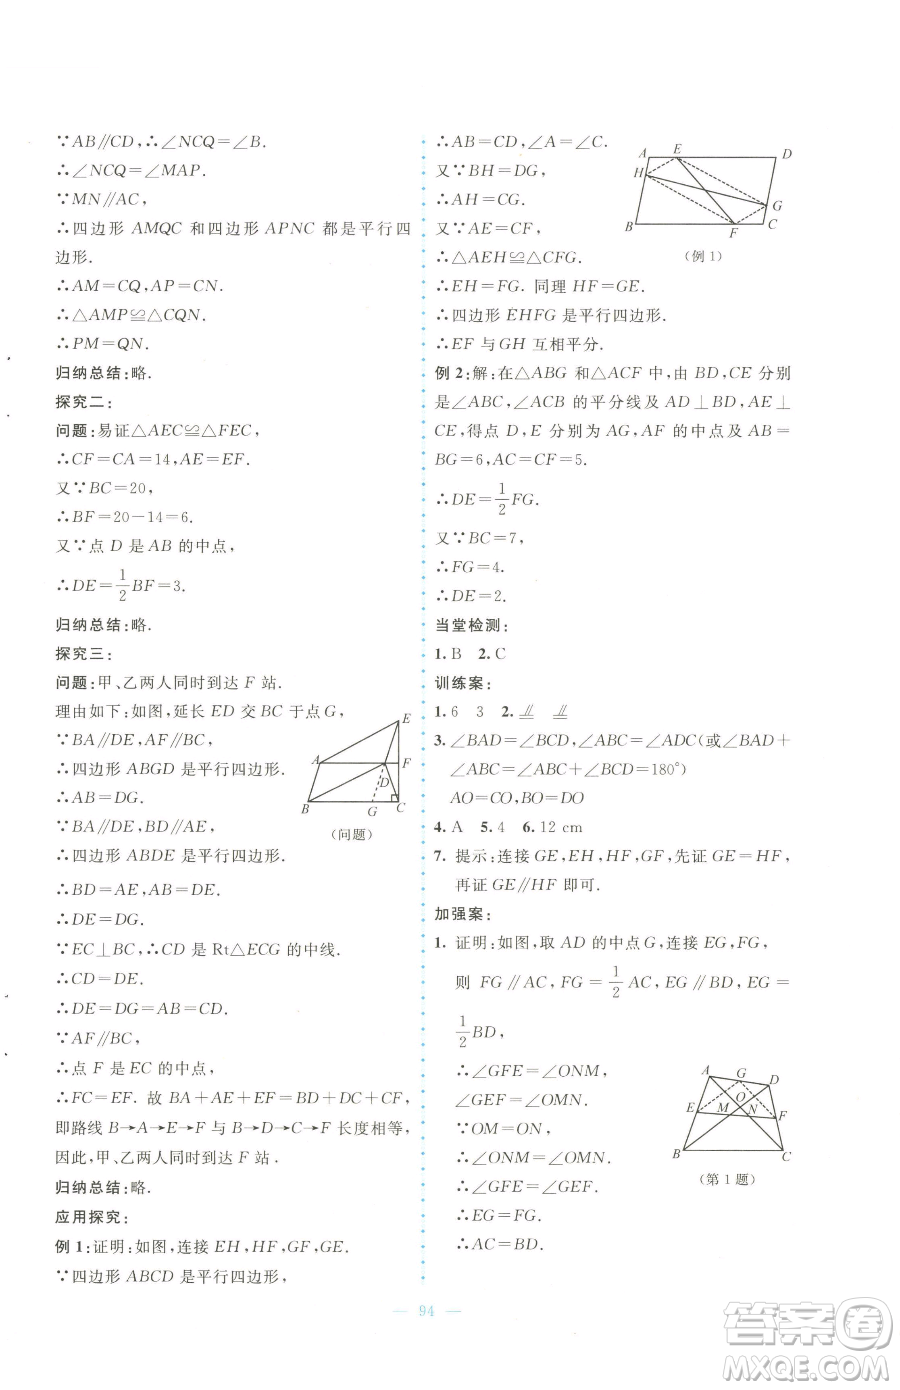 ∵AB∥CD,∴∠NCQ=∠B.
∴∠NCQ=∠MAP.
∵MN∥AC,
∴四边形 AMQC 和四边形 APNC 都是平行四
边形.
∴AM=CQ,AP=CN.
∴△AMP≌△CQN.
∴PM=QN.
归纳总结:略.
探究二:
问题:易证△AEC≌△FEC,
∴CF=CA=14,AE=EF.
又∵BC=20,
∴BF=20-14=6.
又∵点 D 是 AB 的中点,
∴DE=1/2BF=3.
归纳总结:略.
探究三:
问题:甲、乙两人同时到达 F 站.
理由如下:如图,延长 ED 交 BC 于点 G,
∵BA∥DE,AF∥BC,
∴四边形 ABGD 是平行四边形.
∴AB=DG.
∵BA∥DE,BD∥AE,
∴四边形 ABDE 是平行四边形.
∴BD=AE,AB=DE.
∴DE=DG.
∵EC⊥BC,∴CD 是 Rt△ECG 的中线.
∴CD=DE.
∴DE=DG=AB=CD.
∵AF∥BC,
∴点 F 是 EC 的中点.
∴FC=EF. 故 BA+AE+EF=BD+DC+CF,
即路线 B→A→E→F 与 B→D→C→F 长度相等,
因此,甲、乙两人同时到达 F 站.
归纳总结:略.
应用探究:
例 1:证明:如图,连接 EH,HF,GF,GE.
∵四边形 ABCD 是平行四边形,
E
A
F
D
B
G
C
(问题)
∴AB=CD,∠A=∠C.
又∵BH=DG,
∴AH=CG.
又∵AE=CF,
∴△AEH≌△CFG.
∴EH=FG. 同理 HF=GE.
∴四边形 EHFG 是平行四边形.
∴EF 与 GH 互相平分.
A
E
D
H
G
B
F
C
(例 1)
例 2:解:在△ABG 和△ACF 中,由 BD,CE 分别
是∠ABC,∠ACB 的平分线及 AD⊥BD,AE⊥
CE,得点 D,E 分别为 AG,AF 的中点及 AB=
BG=6,AC=CF=5.
∴DE=1/2FG.
又∵BC=7,
∴FG=4.
∴DE=2.
当堂检测:
1.B 2.C
训练案:
1.6 3 2.∥ ∥
3.∠BAD=∠BCD,∠ABC=∠ADC(或∠BAD+
∠ABC=∠ABC+∠BCD=180°)
AO=CO,BO=DO
4.A 5.4 6.12 cm
7. 提示:连接 GE,EH,HF,GF,先证 GE=HF,
再证 GE∥HF 即可.
加强案:
1. 证明:如图,取 AD 的中点 G,连接 EG,FG,
则 FG∥AC,FG=1/2AC,EG∥BD,EG=
1/2BD,
∴∠GFE=∠ONM,
∠GEF=∠OMN.
∵OM=ON,
∴∠ONM=∠OMN.
∴∠GFE=∠GEF.
∴EG=FG.
∴AC=BD.
A
G
D
O
E
M
N
F
B
C
(第 1 题)
— 94 —
答案圈
MXQE.COM